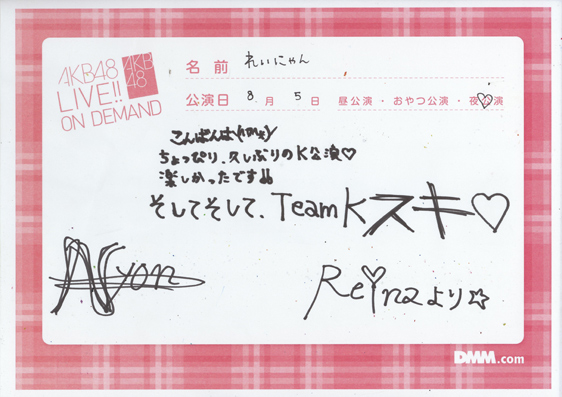 AKB48
LIVE!!
ON DEMAND
AKB
48
名前 れいにゃん
公演日 8月5日 昼公演・おやつ公演・夜公演
こんばんは
ちょっぴり、久しぶりのK公演♡
楽しかったです!!
そしてそして、Team Kスキ♡
Nyon
Reinaより☆
DMM.com